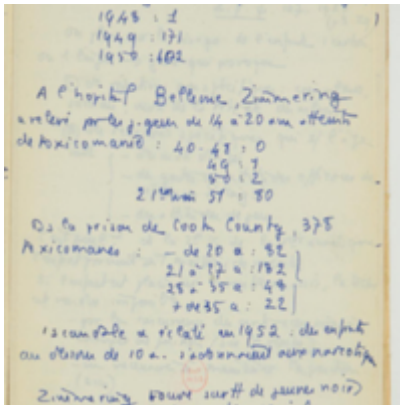 1948 : 1
1949 : 171
1950 :
A l'hopital Bellevue, Zimmering
a relevé pr les j. gens de 14 à 20 ans atteints
de toxicomanie : 40-48 : 0
49 :
50 : 2
51 : 80
Ds la prison de Cook County, 378
toxicomanes : - de 20 a : 82
21 à 27 a : 182
28 à 35 a : 48
+ de 35 a : 22
scandale a éclaté en 1952. des enfants
au dessous de 10 a. s'adonnaient aux
Zimmering trouve sur de jeunes noirs